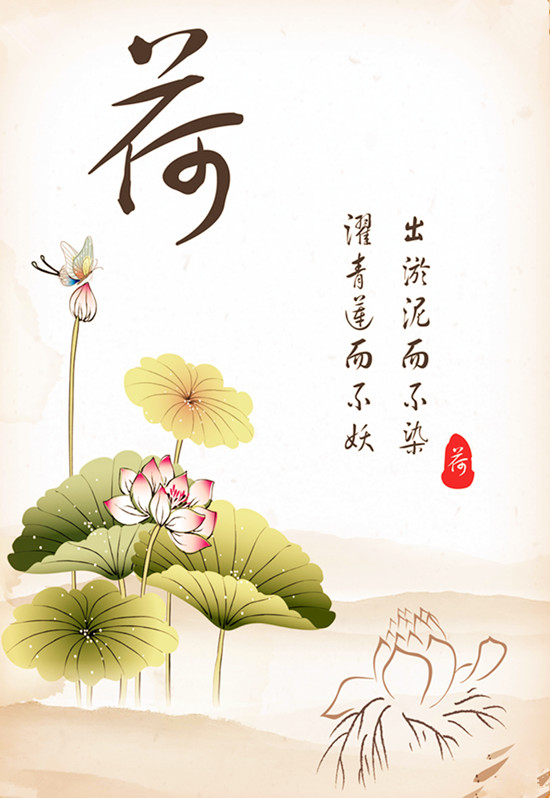 荷
出淤泥而不染
濯青莲而不妖
荷